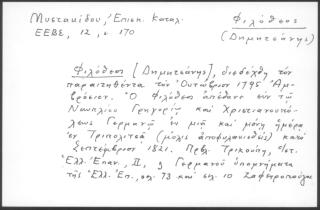 Μυστακίδου, Ἐπισκ. Καταλ.
ΕΕΒΣ, 12, σ. 170
Φιλόθεος
(Δημητσάνης)
Φιλόθεος [Δημητσάνης], διεδέχθη τὸν
παραιτηθέντα τὸν Ὀκτώβριον 1795 Ἀμ-
βρόσιον. Ὁ Φιλόθεος ἀπέθανε σὺν τῷ
Ναυπλίου Γρηγορίῳ καὶ Χριστιανουπό-
λεως Γερμανῷ ἐν μιᾷ καὶ μόνῃ ἡμέρᾳ
ἐν Τριπολιτσᾷ (μόλις ἀποφυλακισθείς) κατὰ
Σεπτέμβριον 1821. Πρβλ. Τρικούπη, Ἱστ.
Ἑλλ. Ἐπαν., ΙΙ, Γερμανοῦ ὑπομνήματα
τῆς Ἑλλ. Ἐπ., σελ. 73 καὶ σελ. 10